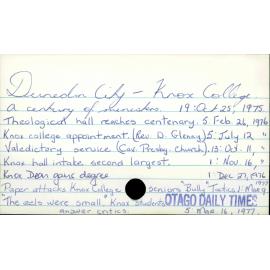 Dunedin City - Knox College.
A century of ministers. 19: Oct 25, 1975.
Theological hall reaches centenary. 5 Feb 26, 1976
Knox college appointment. (Rev. D. Glenny) 5: July 12, "
Valedictory service (Cav. Presby. Church). 13: Oct. 11, "
Knox hall intake second largest. 1: Nov. 16, "
Knox Dean gains degree 1: Dec 27, 1976
Paper attacks Knox College Seniors "Bully" Tactics 1: Mar 9, 1977
"The eels were small" Knox Students OTAGO DAILY TIMES
answer critics. 5 Mar 16, 1977.